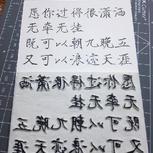 愿你过得很潇洒
无牵无挂
既可以朝九晚五
又可以浪迹天涯
愿你过得很潇洒
无牵无挂
既可以朝九晚五
又可以浪迹天涯